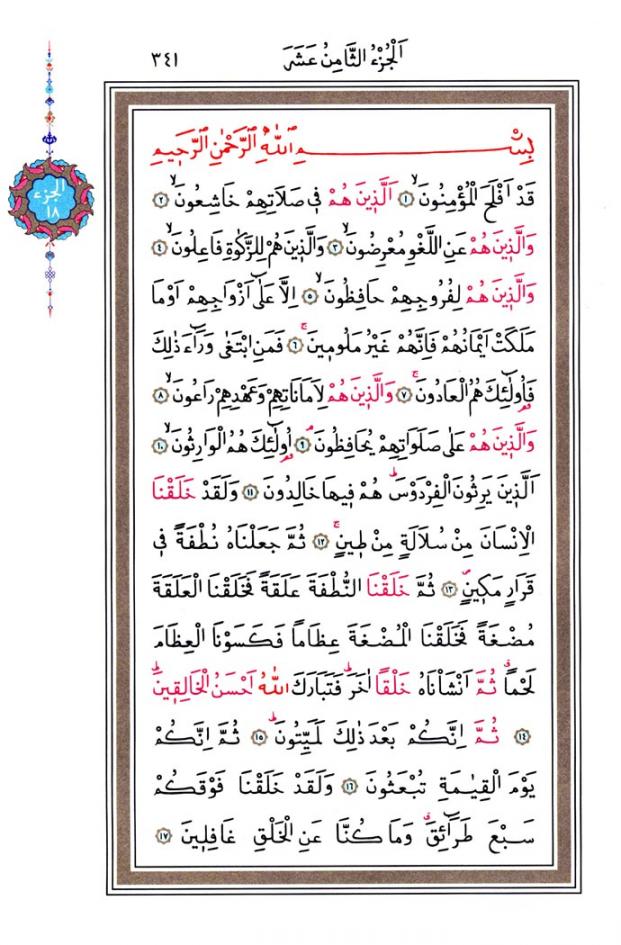 اَلْجُزْءُ الثَّامِنُ عَشَرَ
٣٤١
الجزء
١٨
بِسْمِ اللّٰهِ الرَّحْمٰنِ الرَّحٖيمِ
قَدْ اَفْلَحَ الْمُؤْمِنُونَۙ ١ اَلَّذٖينَ هُمْ فٖى صَلَاتِهِمْ خَاشِعُونَۙ ٢
وَالَّذٖينَ هُمْ عَنِ اللَّغْوِ مُعْرِضُونَۙ ٣ وَالَّذٖينَ هُمْ لِلزَّكٰوةِ فَاعِلُونَۙ ٤
وَالَّذٖينَ هُمْ لِفُرُوجِهِمْ حَافِظُونَۙ ٥ اِلَّا عَلٰٓى اَزْوَاجِهِمْ اَوْ مَا
مَلَكَتْ اَيْمَانُهُمْ فَاِنَّهُمْ غَيْرُ مَلُومٖينَۚ ٦ فَمَنِ ابْتَغٰى وَرَٓاءَ ذٰلِكَ
فَاُو۬لٰٓئِكَ هُمُ الْعَادُونَۚ ٧ وَالَّذٖينَ هُمْ لِاَمَانَاتِهِمْ وَعَهْدِهِمْ رَاعُونَۙ ٨
وَالَّذٖينَ هُمْ عَلٰى صَلَوَاتِهِمْ يُحَافِظُونَۘ ٩ اُو۬لٰٓئِكَ هُمُ الْوَارِثُونَۙ ١٠
اَلَّذٖينَ يَرِثُونَ الْفِرْدَوْسَۜ هُمْ فٖيهَا خَالِدُونَ ١١ وَلَقَدْ خَلَقْنَا
الْاِنْسَانَ مِنْ سُلَالَةٍ مِنْ طٖينٍۚ ١٢ ثُمَّ جَعَلْنَاهُ نُطْفَةً فٖى
قَرَارٍ مَكٖينٍ ١٣ ثُمَّ خَلَقْنَا النُّطْفَةَ عَلَقَةً فَخَلَقْنَا الْعَلَقَةَ
مُضْغَةً فَخَلَقْنَا الْمُضْغَةَ عِظَاماً فَكَسَوْنَا الْعِظَامَ
لَحْماً ثُمَّ اَنْشَاْنَاهُ خَلْقاً اٰخَرَۜ فَتَبَارَكَ اللّٰهُ اَحْسَنُ الْخَالِقٖينَۜ
١٤ ثُمَّ اِنَّكُمْ بَعْدَ ذٰلِكَ لَمَيِّتُونَۜ ١٥ ثُمَّ اِنَّكُمْ
يَوْمَ الْقِيٰمَةِ تُبْعَثُونَ ١٦ وَلَقَدْ خَلَقْنَا فَوْقَكُمْ
سَبْعَ طَرَٓائِقَۗ وَمَا كُنَّا عَنِ الْخَلْقِ غَافِلٖينَ ١٧